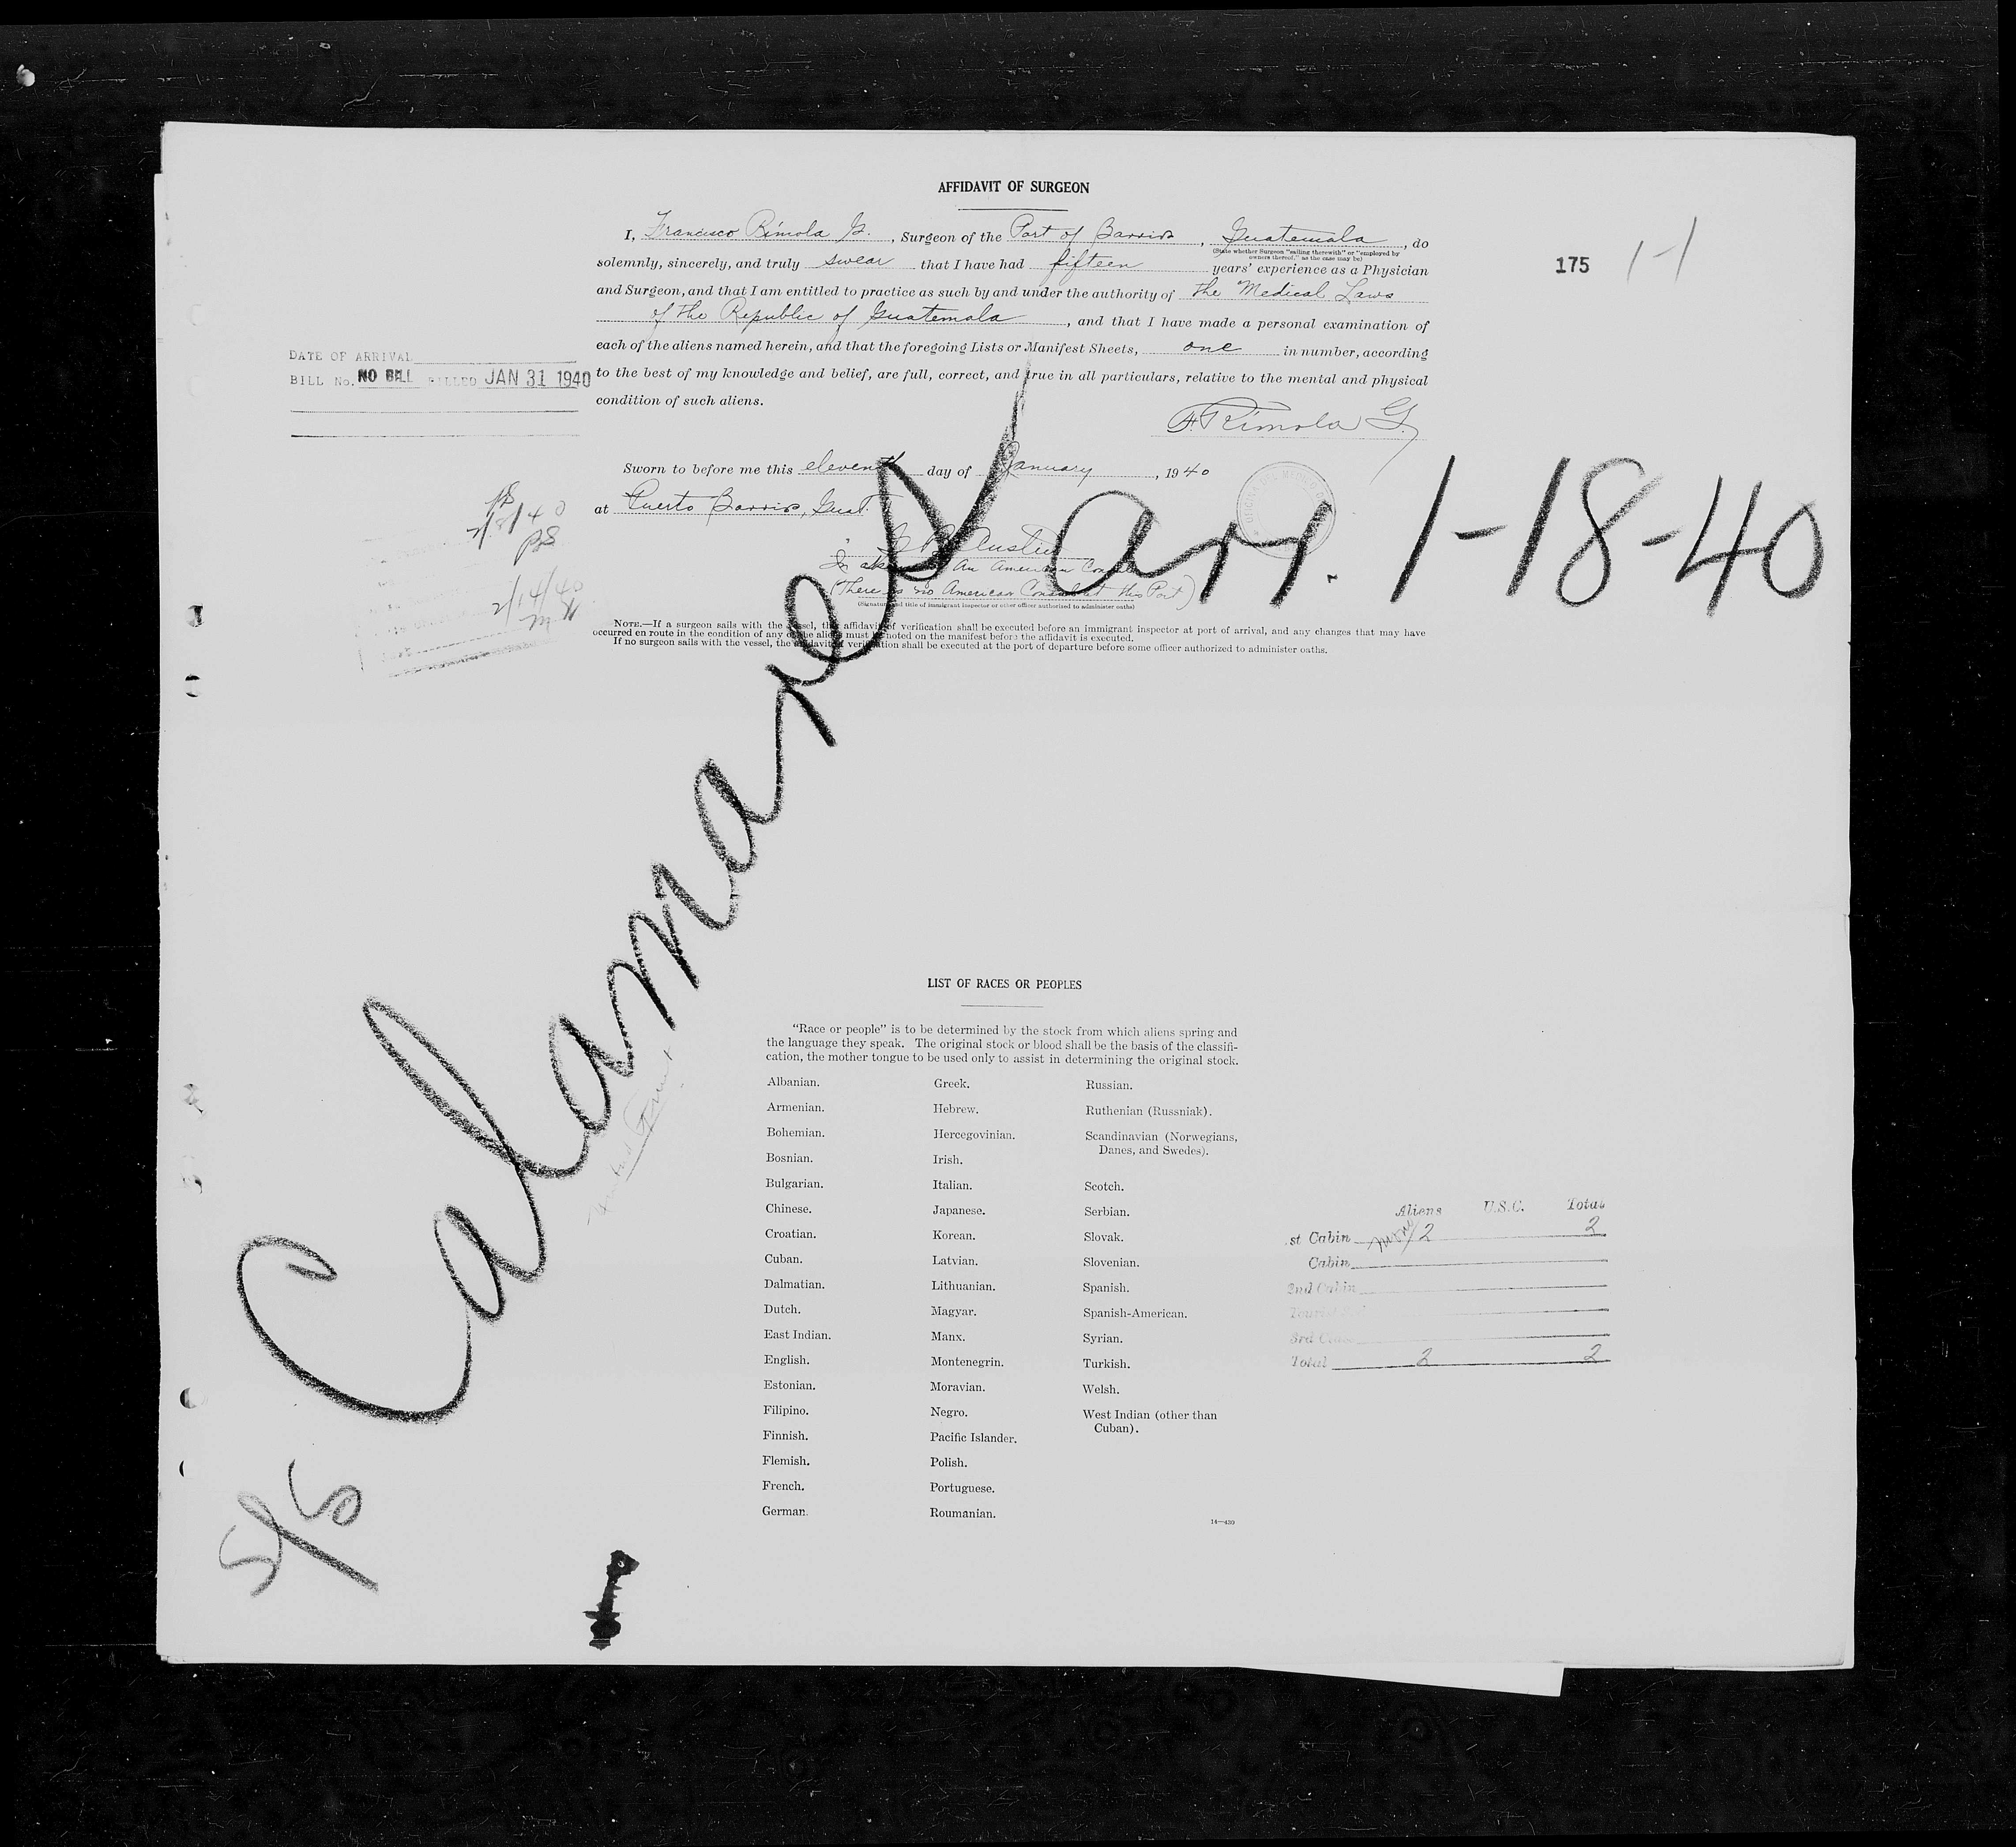 AFFIDAVIT OF SURGEON
I, Francisco Rimola G. , Surgeon of the Port of Barrios , Guatemala , do
(State whether Surgeon "sailing therewith" or "employed by owners thereof," as the case may be)
solemnly, sincerely, and truly swear that I have had fifteen years' experience as a Physician
and Surgeon, and that I am entitled to practice as such by and under the authority of The Medical Laws
of the Republic of Guatemala , and that I have made a personal examination of
each of the aliens named herein, and that the foregoing Lists or Manifest Sheets, one in number, according
to the best of my knowledge and belief, are full, correct, and true in all particulars, relative to the mental and physical
condition of such aliens.
F. Rimola G.
175
1-1
DATE OF ARRIVAL
BILL No. NO BILL BILLED JAN 31 1940
Sworn to before me this eleventh day of January , 1940
at Puerto Barrios, Guat.
Austin
An American Consul
(There is no American Consul at this Port)
(Signature and title of immigrant inspector or other officer authorized to administer oaths)
2/14/40
NOTE.—If a surgeon sails with the vessel, the affidavit of verification shall be executed before an immigrant inspector at port of arrival, and any changes that may have
occurred en route in the condition of any of the aliens must be noted on the manifest before the affidavit is executed.
If no surgeon sails with the vessel, the affidavit of verification shall be executed at the port of departure before some officer authorized to administer oaths.
S/S Calamares arr. 1-18-40
LIST OF RACES OR PEOPLES
"Race or people" is to be determined by the stock from which aliens spring and
the language they speak. The original stock or blood shall be the basis of the classifi-
cation, the mother tongue to be used only to assist in determining the original stock.
Albanian. Greek. Russian.
Armenian. Hebrew. Ruthenian (Russniak).
Bohemian. Hercegovinian. Scandinavian (Norwegians,
Danes, and Swedes).
Bosnian. Irish.
Bulgarian. Italian. Scotch.
Chinese. Japanese. Serbian.
Croatian. Korean. Slovak.
Cuban. Latvian. Slovenian.
Dalmatian. Lithuanian. Spanish.
Dutch. Magyar. Spanish-American.
East Indian. Manx. Syrian.
English. Montenegrin. Turkish.
Estonian. Moravian. Welsh.
Filipino. Negro. West Indian (other than
Cuban).
Finnish. Pacific Islander.
Flemish. Polish.
French. Portuguese.
German. Roumanian.
14—430
Aliens U.S.C. Total
st Cabin 2 2
Cabin
2nd Cabin
Tourist
3rd Class
Total 2 2